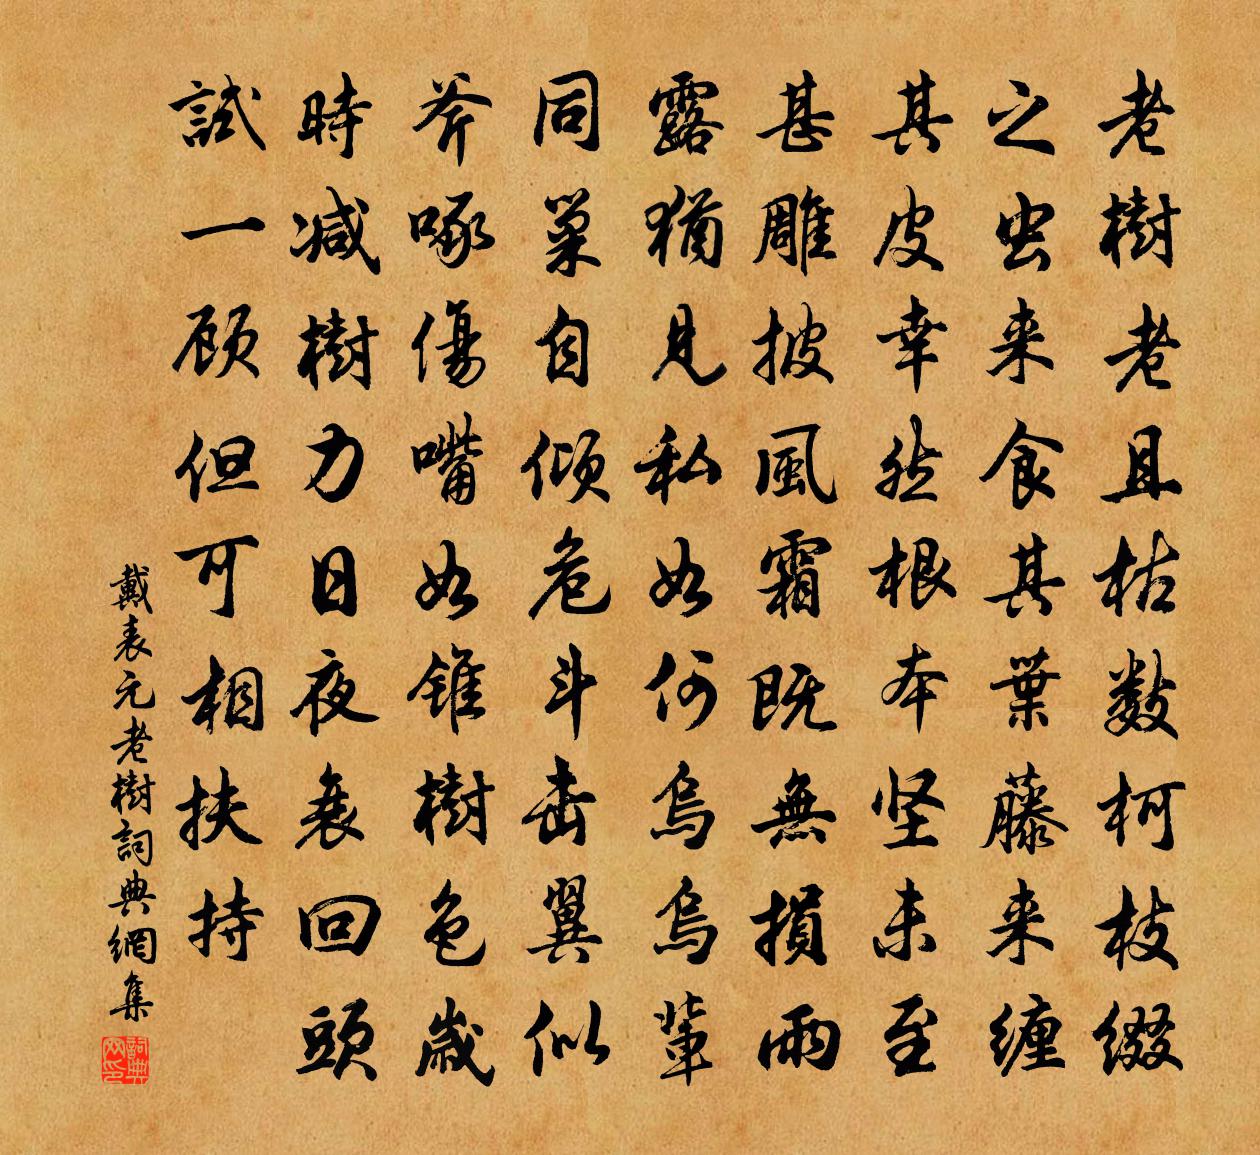 老樹老且枯數柯枝綴
之虫来食其葉藤来缠
其皮幸然根本坚未至
甚雕披風霜既無損雨
露猶見私如何烏烏輩
同巢自倾危斗击翼似
斧啄傷嘴如錐樹色歲
時减樹力日夜衰回頭
試一顾但可相扶持
戴表元老樹詞典網集
詞典网印